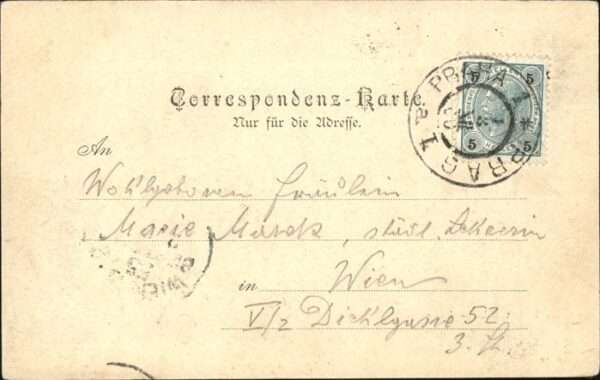 Correspondenz-Karte.
Nur für die Adresse.
PRAHA
PRAG 1
5 5
5 5
An
Wohlgeboren Fräulein
Marie Marek, städt.
in Wien
V/2 52
3.
WIEN